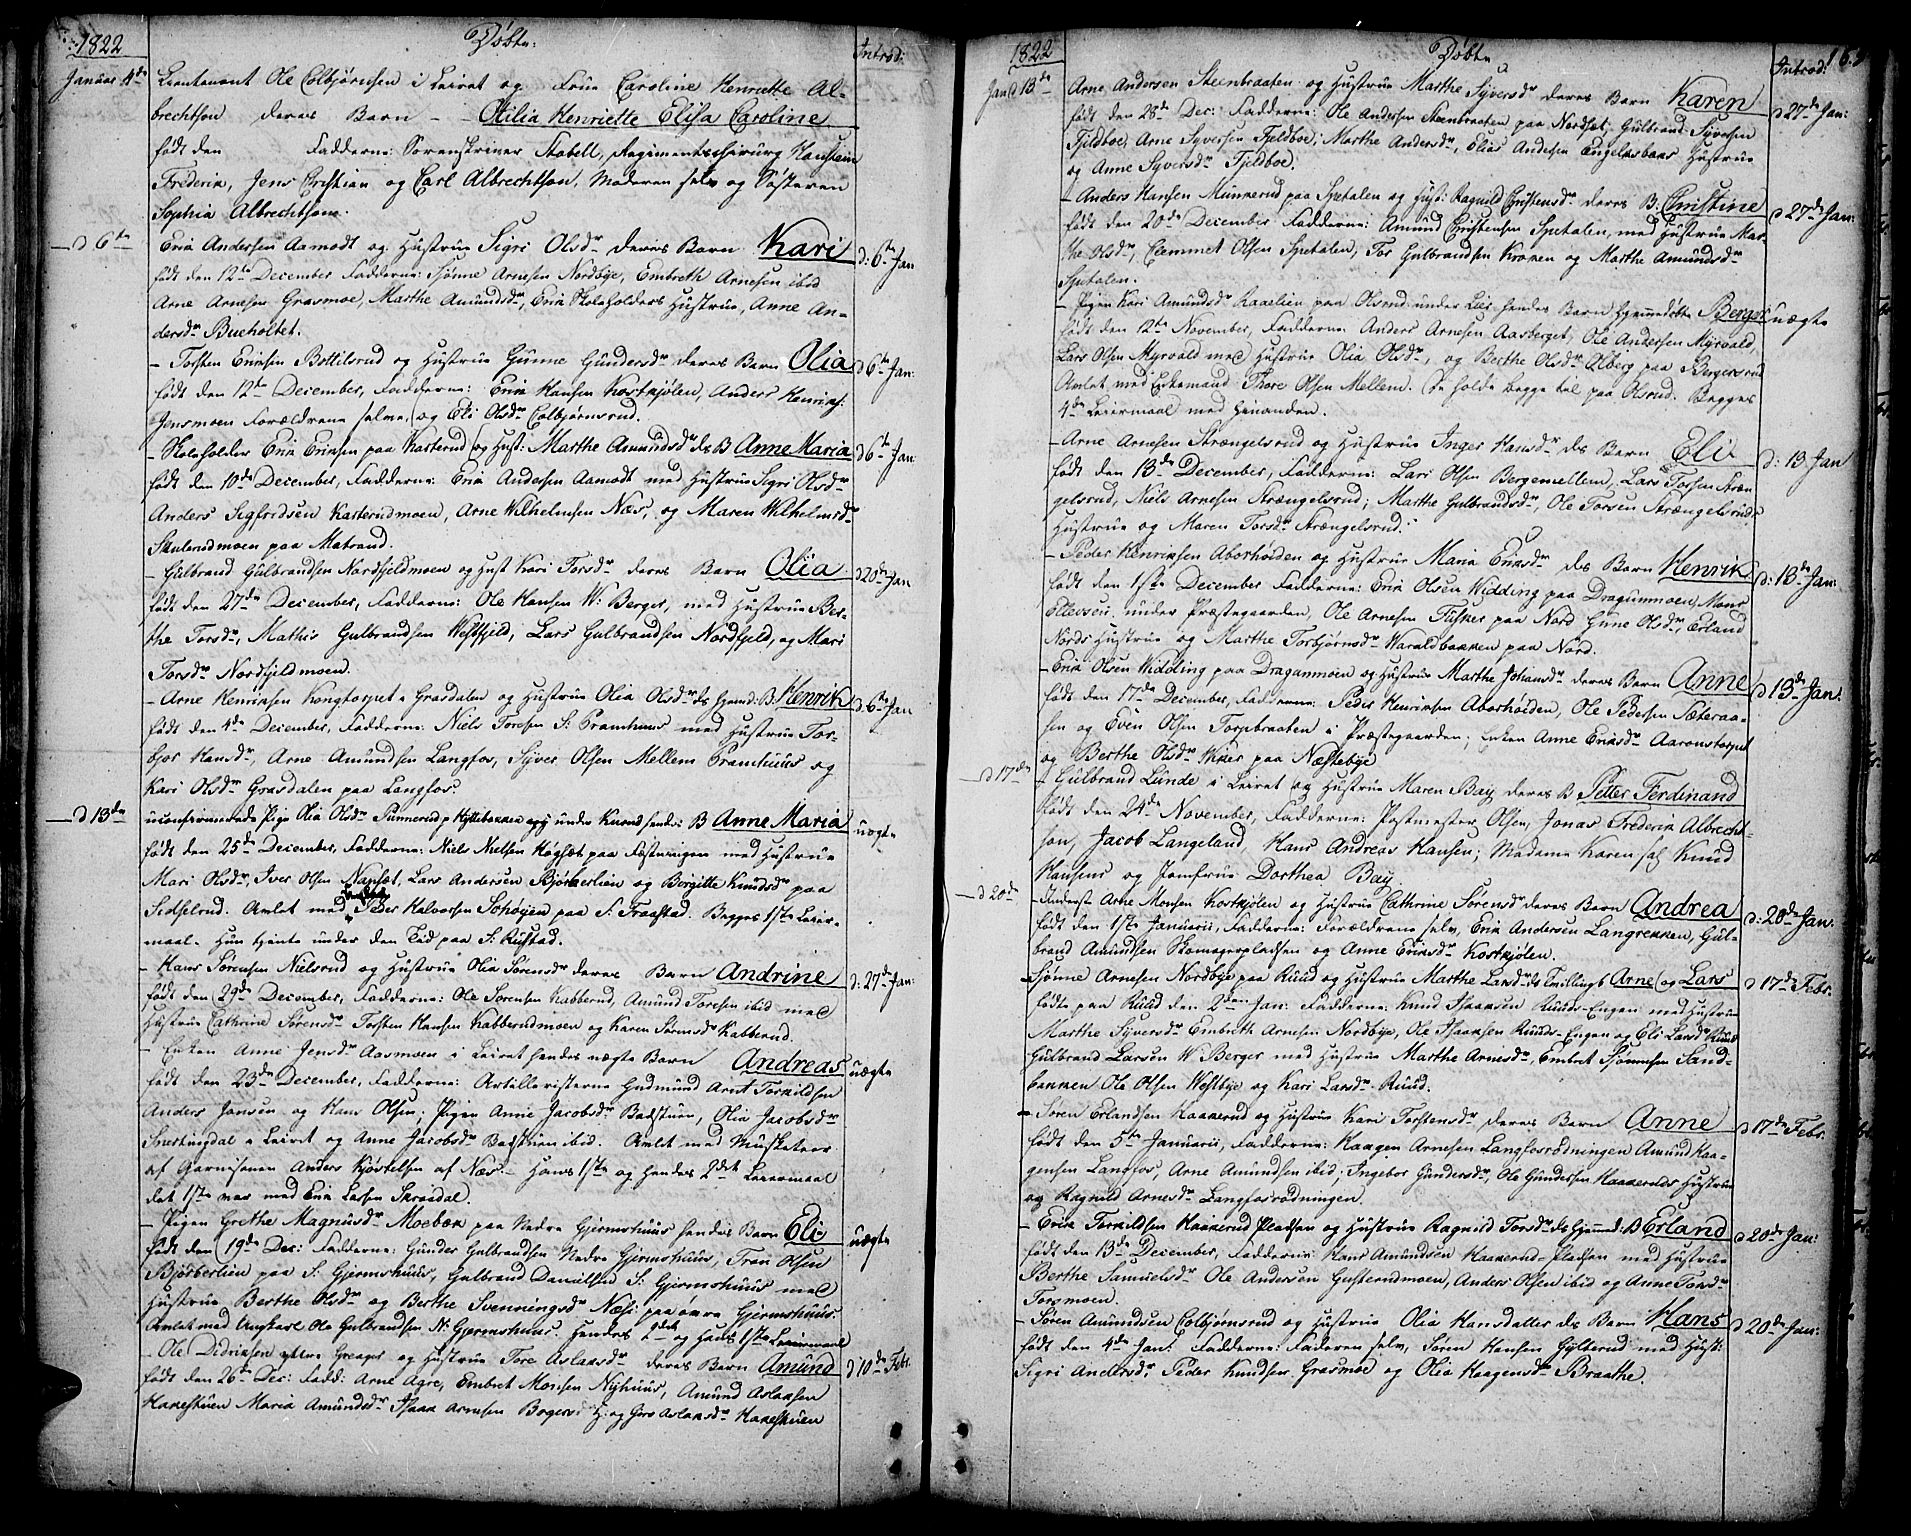 1822 Döbte: Introd:
Januar 4de Lieutenant Ole Colbjörnsen i Leiret og Frue Caroline Henriette Al-
brechtson deres Barn - Otilia Henriette Elisa Caroline
født den Fadderne: Sorenskriver Stabell, Regimentschirurg Haustein
Frederik, Jens Christian og Carl Albrechtson, Moderen selv og Søsteren
Sophia Albrechtson.
d 6te Erik Andersen Aamodt og Hustrue Sigri Olsdr deres Barn Kari d: 6te Jan
født den 12te December Fadderne: Sjönne Arnesen Nordbye, Embreth Arnesen ibid
Arne Arnesen Grasmoe, Marthe Amundsdr, Erik Skoleholders Hustrue, Anne An-
dersdr Bueholtet.
- Torsten Eriksen Bottilsrud og Hustrue Gunne Gundersdr deres Barn Olia d 6te Jan:
født den 12te December, Fadderne: Erik Hansen Kostkjölen, Anders Henriks:
Jensmoen Forældrene selve, og Eli Olsdr Colbjørnsrud.
- Skoleholder Erik Eriksen paa Karterud og Hust: Marthe Amundsdr ds B Anne Maria d 6te Jan:
født den 10de December, Fadderne: Erik Andersen Aamodt med Hustrue Sigri Olsdr
Anders Sigfridsen Karterudmoen, Arne Wilhelmsen Næs, og Maren Wilhelmsdr
Skulerudmoen paa Matrand.
- Gulbrand Gulbrandsen Nordfjeldmoen og Hust Kari Torsdr deres Barn Olia d 20de Jan
født den 27de December, Fadderne: Ole Hansen W: Berger, med Hustrue Ber-
the Torsdr, Mathis Gulbrandsen Westfjeld, Lars Gulbrandsen Nordfjeld, og Mari
Torsdr Nordfjeldmoen.
- Arne Henriksen Kongtorpet i Grasdalen og Hustrue Olia Olsdr ds Hjemd: B. Henrik d. 6te Jan
født den 4de December, Fadderne: Niels Toresen S: Pramhuus med Hustrue Tor-
bjor Hansdr, Arne Amundsen Langfos, Syver Olsen Mellem Pramhuus og
Kari Olsdr Grasdalen paa Langfos.
d 13de uconfirmerede Pige Olia Olsdr Tunnerud p Hyttebakken under Kurud hendes: B Anne Maria uægte
født den 25de December, Fadderne: Niels Nielsen Høgsæt paa Fæstningen med Hustrue
Mari Olsdr, Iver Olsen Napsæt, Lars Andersen Bjørkerlien og Borgitte Knudsdr paa
Sidselrud. Avlet med Peder Halvorsen Sohöyen paa S: Fraastad. Begges 1ste Leier-
maal. Hun tjente under den Tid paa S: Rustad.
- Hans Sørensen Nielsrud og Hustrue Olia Sørensdr deres Barn Andrine d. 27de Jan:
født den 29de December, Fadderne: Ole Sørensen Kabberud, Amund Toresen ibid med
Hustrue Cathrine Sørensdr Torsten Hansen Kabberudmoen og Karen Sørensdr Kabberud.
- Enken Anne Jensdr Aasmoen i Leiret hendes uægte Barn Andreas uægte
født den 23de December, Fadderne: Artilleristerne Gudmund Arnt Torkildsen
Anders Jonsen og Hans Olsen: Pigen Anne Jacobsdr Badstuen, Olia Jacobsdr
Snertingdal i Leiret og Anne Jacobsdr Badstuen ibid. Avlet med Musketeer
af Garnisonen Anders Kjöstelsen af Næs - Hans 1ste og hendes 2det Leiermaal
det 1ste var med Erik Larsen Skroidal.
- Pigen Grethe Magnusdr Moebæk paa Nedre Gjermshuus hendes Barn Eli uægte
født den 19de Dec: Fadderne: Gunder Gulbrandsen Nedre Gjermshuus, Tron Olsen
Björkerlien paa S: Gjermshuus, Gulbrand Danielsen S: Gjermshuus med
Hustrue Berthe Olsdr og Berthe Svenningsdr Næss: paa övre Gjermshuus.
Avlet med Ungkarl Ole Gulbrandsen N: Gjermshuus. Hendes 2det og Hans 1ste Leiermaal
- Ole Didriksen yttre Greager og Hustrue Tore Aslaksdr deres Barn Amund d 10de Febr.
født den 26de Dec: Fadd: Arne Agre, Embret Monsen Nyhuus, Amund Aslaksen
Hakestuen Maria Amundsdr Isaak Arnesen Bogers H: og Goro Aslaksdr Hakestuen
1822 Döbte Introd:
Jan d 13de Arne Andersen Steenbraaten og Hustrue Marthe Syversdr deres Barn Karen d 27de Jan:
født den 28de Dec: Fadderne: Ole Andersen Steenbraaten paa Nordset, Gulbrand Syversen
Fjeldboe, Arne Syversen Fjeldboe, Marthe Andersdr, Elias Andersen Engelaasbaks Hustrue
og Anne Syversdr Fjeldboe.
- Anders Hansen Munkerud paa Spetalen og Hust: Ragnild Christensdr deres B: Christine d 27de Jan:
født den 20de December Fadderne: Amund Christensen Spetalen, med Hustrue Mar-
the Olsdr, Clemmet Olsen Spetalen, Tor Gulbrandsen Kroken og Marthe Amundsdr
Spetalen.
- Pigen Kari Amundsdr Raaelien paa Olsrud under Lier hendes Barn hjemmedøbte Berger uægte
født den 12te November, Fadderne: Anders Arnesen Aasberget, Ole Andersen Myrvald,
Lars Olsen Myrvald med Hustrue Olia Olsdr, og Berthe Olsdr Olberg paa Bergersrud
Avlet med Enkemand Thore Olsen Mellem. De holdt begge til paa Olsrud. Begges
4de Leiermaal med hinanden.
- Arne Arnesen Strængelsrud og Hustrue Inger Hansdr ds Barn Eli d: 13 Jan
født den 13de December, Fadderne: Lars Olsen Bergemellem, Lars Torsen Stræn
gelsrud, Niels Arnesen Strængelsrud; Marthe Gulbrandsdr, Ole Torsen Strængelsruds
Hustrue og Maren Torsdr Strængelsrud.
- Peder Henriksen Aborhöiden og Hustrue Maria Eriksdr ds Barn Henrik d: 13de Jan:
født den 1ste December Fadderne: Erik Olsen Widding paa Dragunmoen, Mons
Ellevsen under Præstegaarden, Ole Arnesen Fiskes paa Nord Gune Olsdr, Erland
Nords Hustrue og Marthe Torbjørnsdr Waraldbakken paa Nord.
- Erik Olsen Widding paa Dragunmoen og Hustrue Marthe Johansdr deres Barn Anne d 13de Jan.
født den 17de December, Fadderne: Peder Henriksen Aborhöiden, Ole Pedersen Sæteraa-
sen og Even Olsen Torpbraaten i Præstegaarden; Enken Anne Eriksdr Aaronstorpet
og Berthe Olsdr Viker paa Næstebye
d 17de - Gulbrand Lunde i Leiret og Hustrue Maren Bay deres B Petter Ferdinand
født den 24de November, Fadderne: Postmester Olsen, Jonas Frederik Albrecht-
son, Jacob Langeland, Hans Andreas Hansen; Madame Karen sal Knud
Hansens og Jomfrue Dorthea Bay
d 20de - Inderst Arne Monsen Kostkjölen og Hustrue Cathrine Sørensdr deres Barn Andrea d: 20de Jan:
født den 1ste Januarii, Fadderne: Forældrene selv, Erik Andersen Langrekken, Gul-
brand Amundsen Skomagerpladsen og Anne Eriksdr Kostkjölen.
- Sjönne Arnesen Nordbye paa Ruud og Hustrue Marthe Larsdr ds Tvillingb Arne og Lars d 17de Febr.
fødte paa Ruud den 2den Jan: Fadderne: Knud Isaaksen Ruuds-Engen med Hustrue
Marthe Syversdr Embreth Arnesen Nordbye, Ole Isaaksen Ruuds-Engen og Eli Larsdr Ruud
Gulbrand Larsen W Berger med Hustrue Marthe Arnesdr, Embret Sjonnesen Sand-
bakken Ole Olsen Westbye og Kari Larsdr Ruud.
- Søren Erlandsen Haakerud og Hustrue Kari Torstensdr deres Barn Anne d 17de Febr.
født den 5te Januarii, Fadderne: Haagen Arnesen Langfosrødningen Amund Haa-
gensen Langfos, Arne Amundsen ibid; Ingebor Gundersdr, Ole Gundersen Haakeruds Hustrue
og Ragnild Arnesdr Langfosrødningen.
- Erik Torkildsen Haakerud Pladsen og Hustrue Ragnild Torsdr ds Hjemd: B Erland d 20de Jan:
født den 13de December, Fadderne: Hans Amundsen Haakerud-Pladsen med Hustrue
Berthe Samuelsdr Ole Andersen Gusterudmoen, Anders Olsen ibid og Anne Torsdr
Torsmoen.
- Søren Amundsen Colbjørnsrud og Hustrue Olia Hansdatter ds Barn Hans d 20de Jan:
født den 4de Jan: Fadderne: Faderen selv, Søren Hansen Gylterud med Hust:
Sigri Andersdr, Peder Knudsen Grasmoe og Olia Haagensdr Braathe.